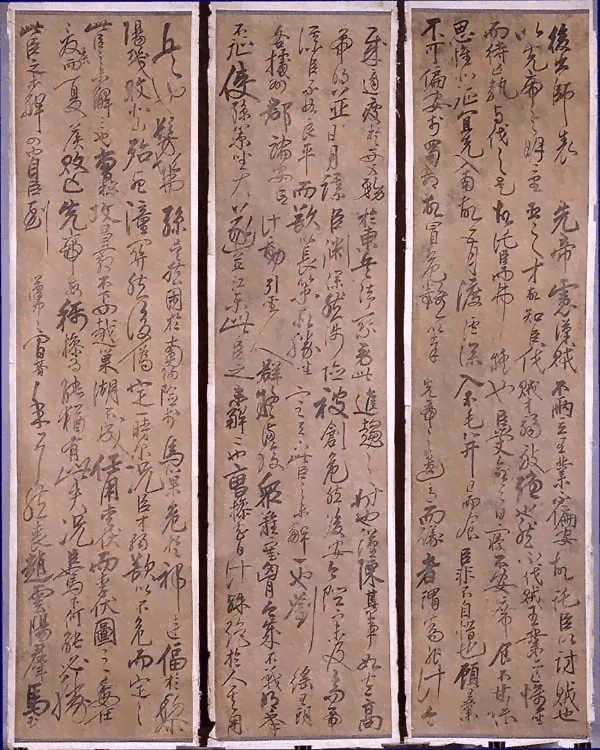 後出師表 先帝慮漢賊不兩立王業不偏安故託臣以討賊也
以先帝之明量臣之才故知臣伐賊才弱敵強也然不伐賊王業亦亡惟坐
而待亡孰與伐之是故託臣而弗疑也臣受命之日寢不安席食不甘味
思惟北征宜先入南故五月渡瀘深入不毛并日而食臣非不自惜也顧王業
不可偏安於蜀都故冒危難以奉先帝之遺意而議者謂為非計今
賊適疲於西又務於東兵法乘勞此進趨之時也謹陳其事如左高
帝明並日月謀臣淵深然涉險被創危然後安今陛下未及高帝
謀臣不如良平而欲以長策取勝坐定天下此臣之未解一也劉繇王朗
各據州郡論安言計動引聖人群疑滿腹眾難塞胸今歲不戰明年
不征使孫策坐大遂并江東此臣之未解二也曹操智計殊絕於人其用
兵也髣髴孫吳然困於南陽險於烏巢危於祁連偪於黎
陽幾敗北山殆死潼關然後偽定一時爾況臣才弱欲以不危而定之
此臣之未解三也曹操五攻昌霸不下四越巢湖不成任用李伏而李伏圖之委任
夏侯而夏侯敗亡先帝每稱操為能猶有此失況臣駑下何能必勝
此臣之未解四也自臣到漢中中間朞年耳然喪趙雲陽群馬玉